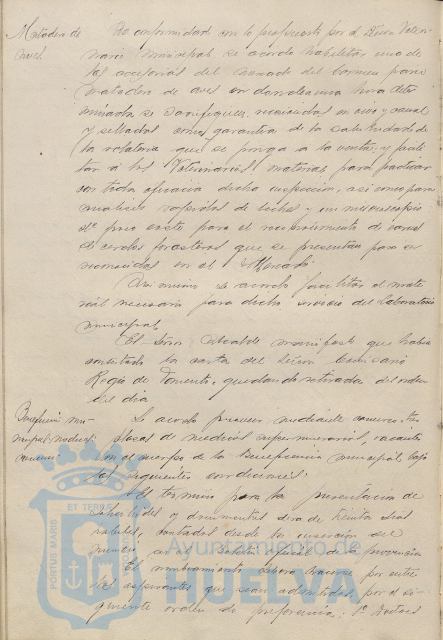 Matadero de
aves.
De conformidad con lo propuesto por el Señor Veteri-
nario municipal se acordó habilitar una de
las accesorias del mercado del Carmen para
matadero de aves en donde a una hora deter-
minada se sacrifiquen, reconocidas en vivo y canal
y selladas como garantía de la salubridad de
la volatería que se ponga a la venta; y facili-
tar a los Veterinarios material para practicar
con toda eficacia dicha inspección, así como para
análisis rápidos de leches y un microscopio
de poco coste para el reconocimiento de carnes
de cerdos forasteros que se presentan para ser
reconocidas en el Mercado.
Asi mismo se acordó facilitar el mate
rial necesario para dicho servicio del Laboratorio
municipal.
El Señor Alcalde manifestó que había
contestado la carta del Señor Comisario
Regio de Fomento, quedando retirada del orden
del dia.
Beneficencia mu-
nicipal.
Se acordó proveer mediante concurso tres
plazas de médicos supernumerarios, vacantes
en el cuerpo de la Beneficencia municipal bajo
las siguientes condiciones:
El término para la presentación de
solicitudes y documentos será de treinta dias
hábiles, contados desde la inserción del
anuncio en el Boletín oficial de la provincia
El nombramiento deberá hacerse por entre
los aspirantes que sean admitidos, por el si-
guiente orden de preferencia: 1º Doctores
PORTUS MARIS
ET TERRAE
Ayuntamiento de
HUELVA